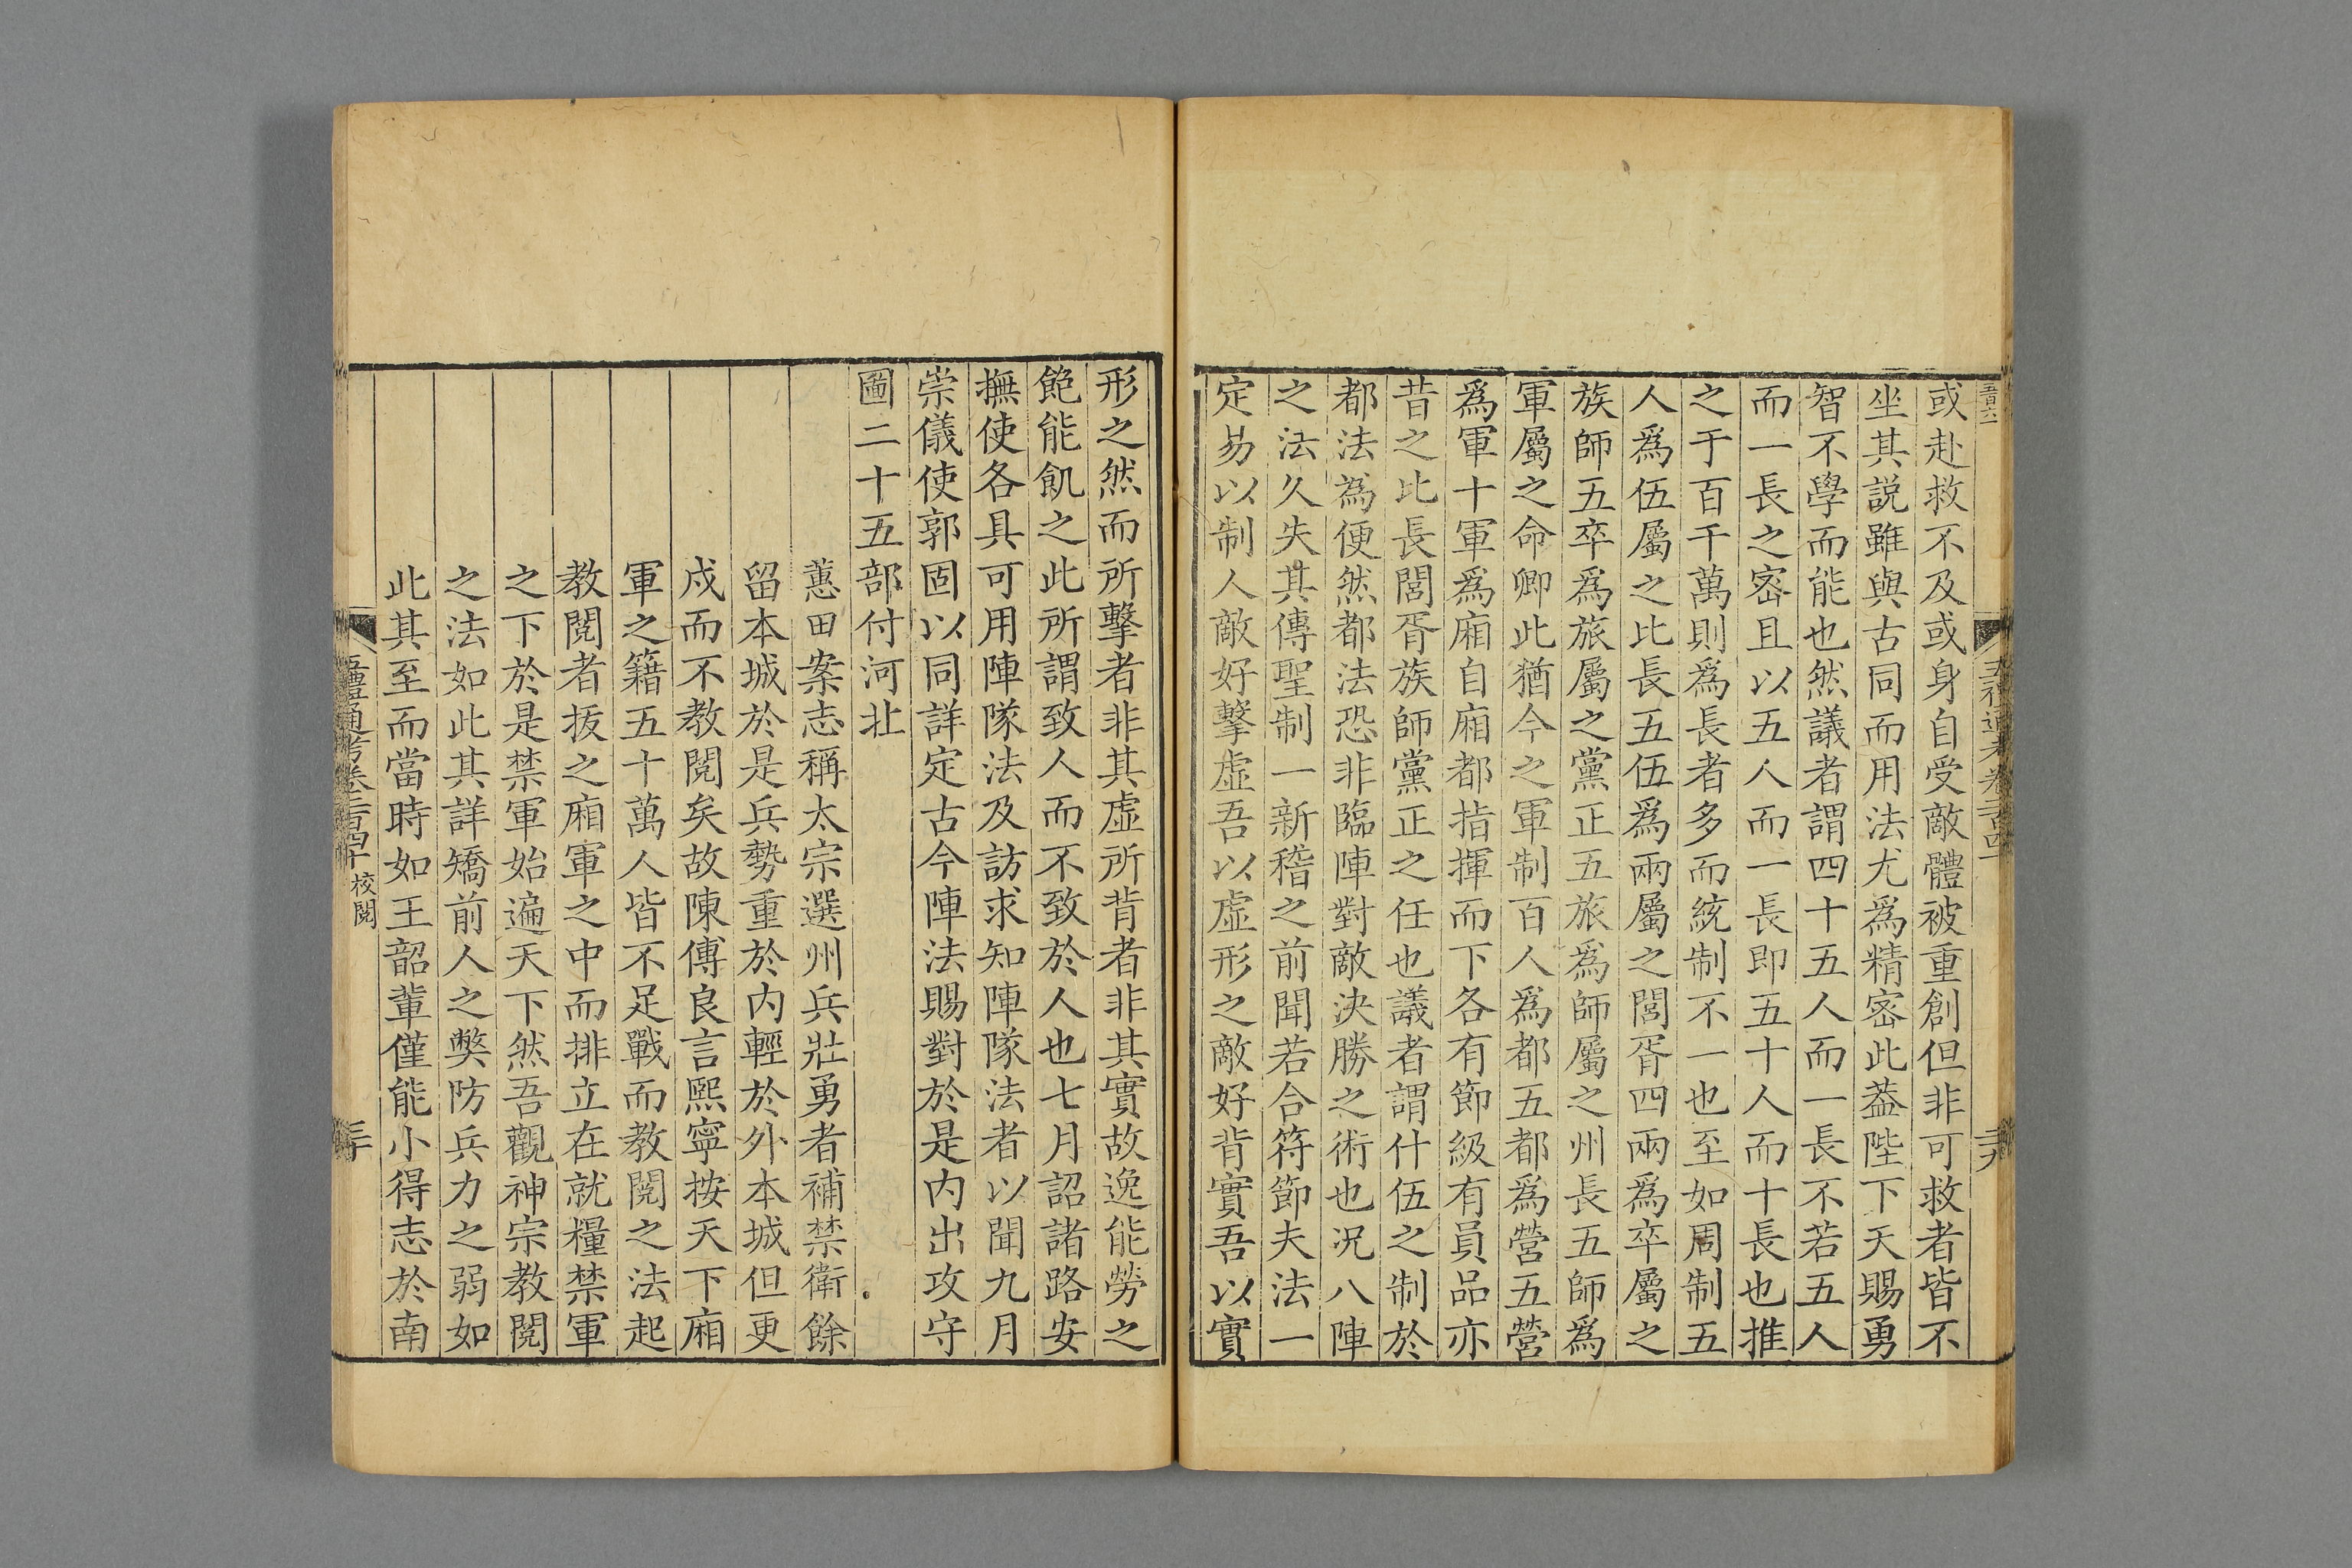 或赴救不及或身自受敵體被重創但非可救者皆不
坐其説雖與古同而用法尤爲精密此葢陛下天賜勇
智不學而能也然議者謂四十五人而一長不若五人
而一長之密且以五人而一長即五十人而十長也推
之于百千萬則爲長者多而統制不一也至如周制五
人爲伍屬之比長五伍爲兩屬之閭胥四兩爲卒屬之
族師五卒爲旅屬之黨正五旅爲師屬之州長五師爲
軍屬之命卿此猶今之軍制百人爲都五都爲營五營
爲軍十軍爲廂自廂都指揮而下各有節級有員品亦
昔之比長閭胥族師黨正之任也議者謂什伍之制於
都法為便然都法恐非臨陣對敵決勝之術也況八陣
之法久失其傳聖制一新稽之前聞若合符節夫法一
定易以制人敵好擊虛吾以虛形之敵好背實吾以實
形之然而所擊者非其虛所背者非其實故逸能勞之
飽能飢之此所謂致人而不致於人也七月詔諸路安
撫使各具可用陣隊法及訪求知陣隊法者以聞九月
崇儀使郭固以同詳定古今陣法賜對於是内出攻守
圖二十五部付河北
蕙田案志稱太宗選州兵壯勇者補禁衛餘
留本城於是兵勢重於内輕於外本城但更
戍而不教閱矣故陳傅良言熙寧按天下廂
軍之籍五十萬人皆不足戰而教閱之法起
教閱者拔之廂軍之中而排立在就糧禁軍
之下於是禁軍始遍天下然吾觀神宗教閱
之法如此其詳矯前人之弊防兵力之弱如
此其至而當時如王韶輩僅能小得志於南
五禮通考卷二百四十 校閱